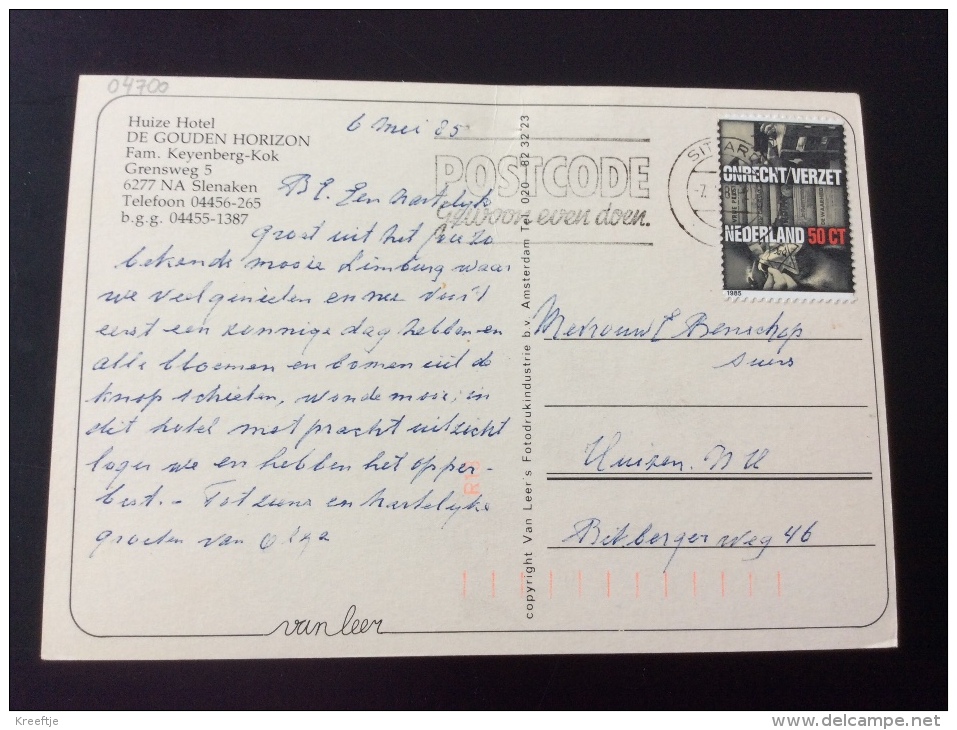 04700
Huize Hotel
DE GOUDEN HORIZON
Fam. Keyenberg-Kok
Grensweg 5
6277 NA Slenaken
Telefoon 04456-265
b.g.g. 04455-1387
6 mei 85
B E. Een hartelijk
groet uit het
bekende mooie Limburg waar
we veel genieten en nu
eerst een zonnige dag hebben en
alle bloemen en bomen uit de
knop schieten, mooi, in
dit hotel met pracht uitzicht
loger we en hebben het opper-
best. - Tot ziens en hartelijke
groeten van Olga
van leer
copyright Van Leer's Fotodrukindustrie b.v. Amsterdam Tel. 020 - 82 32'23
POSTCODE
Gewoon even doen.
SITTARD
ONRECHT/VERZET
NEDERLAND 50 CT
1985
Mevrouw E Benschop
Huizen. NH
weg 46
Kreeftje
delcampe.net